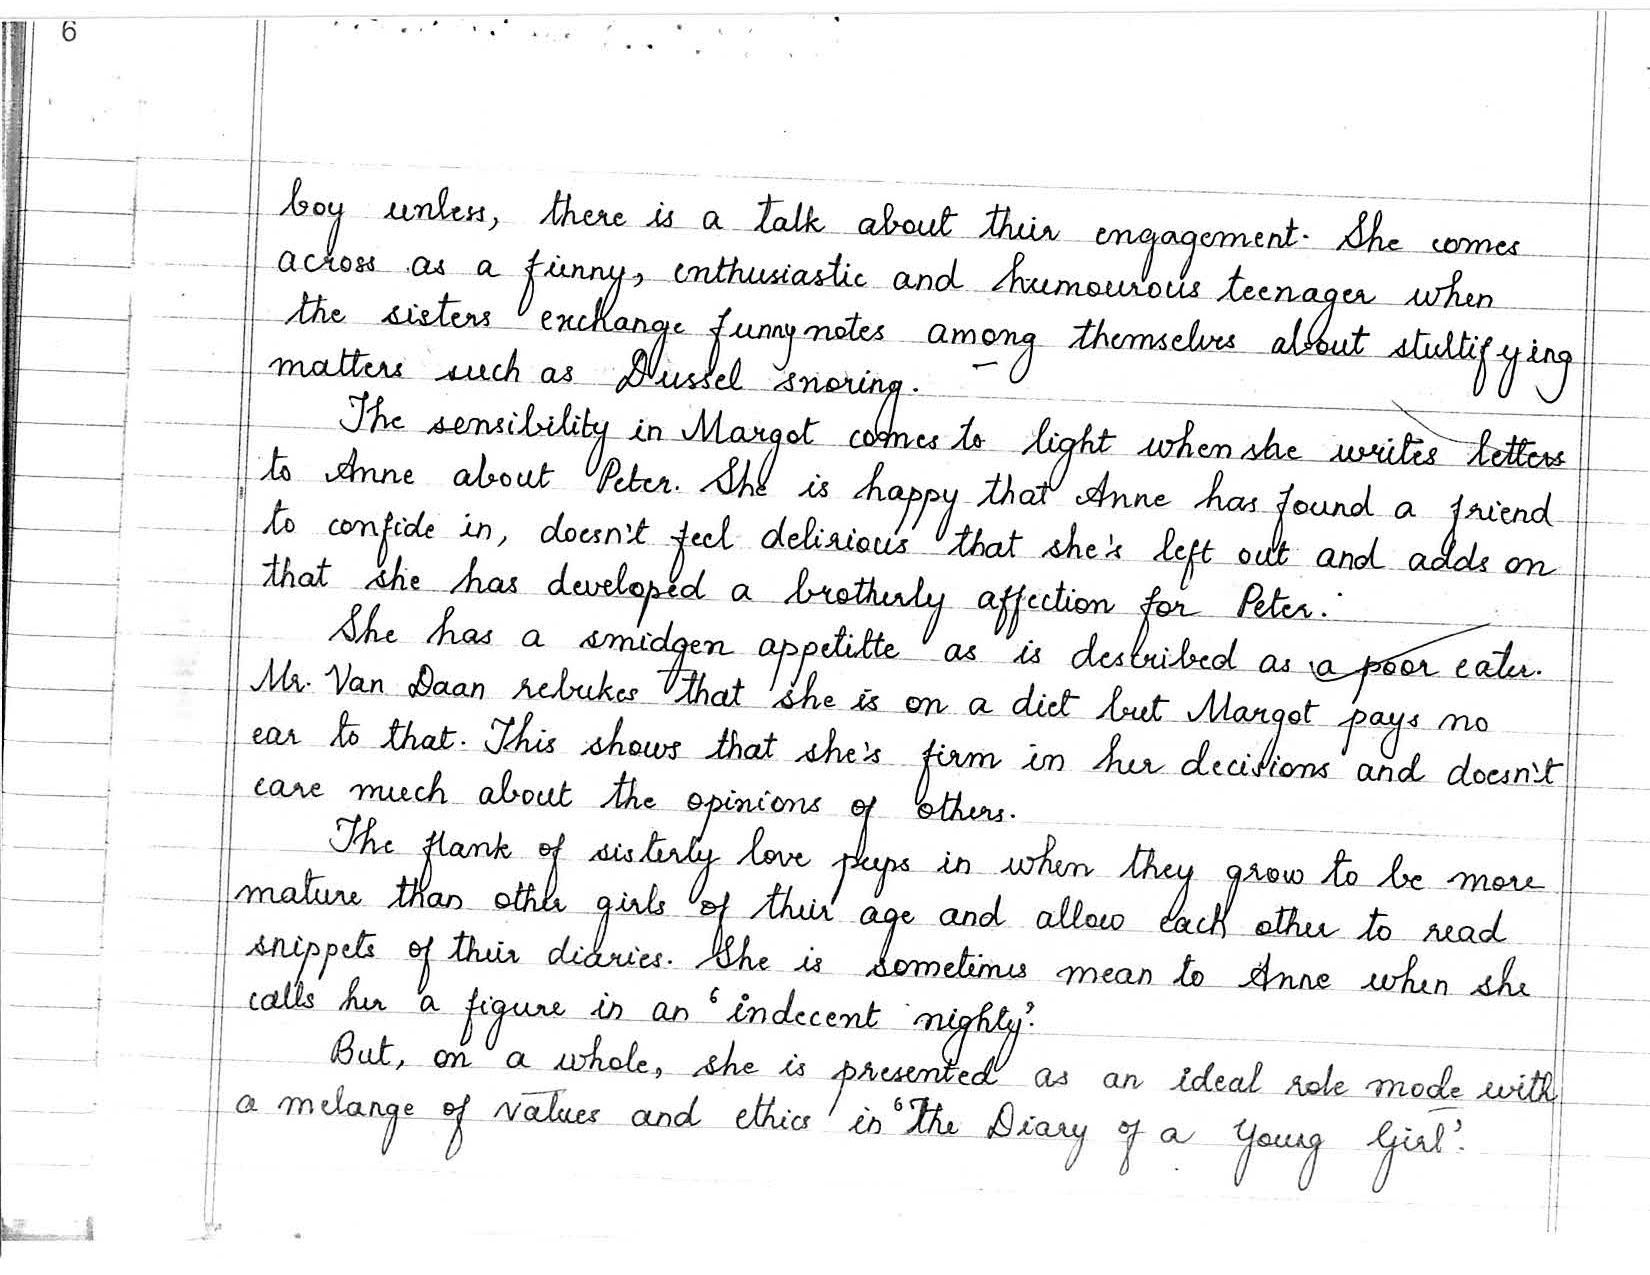 6
boy unless, there is a talk about their engagement. She comes
across as a funny, enthusiastic and humourous teenager when
the sisters exchange funny notes among themselves about stultifying
matters such as Dussel snoring.
The sensibility in Margot comes to light when she writes letters
to Anne about Peter. She is happy that Anne has found a friend
to confide in, doesn't feel delirious that she's left out and adds on
that she has developed a brotherly affection for Peter.
She has a smidgen appetitte as is described as a poor eater.
Mr. Van Daan rebukes that she is on a diet but Margot pays no
ear to that. This shows that she's firm in her decisions and doesn't
care much about the opinions of others.
The flank of sisterly love peeps in when they grow to be more
mature than other girls of their age and allow each other to read
snippets of their diaries. She is sometimes mean to Anne when she
calls her a figure in an 'indecent nighty'.
But, on a whole, she is presented as an ideal role mode with
a melange of values and ethics in 'The Diary of a Young Girl'.